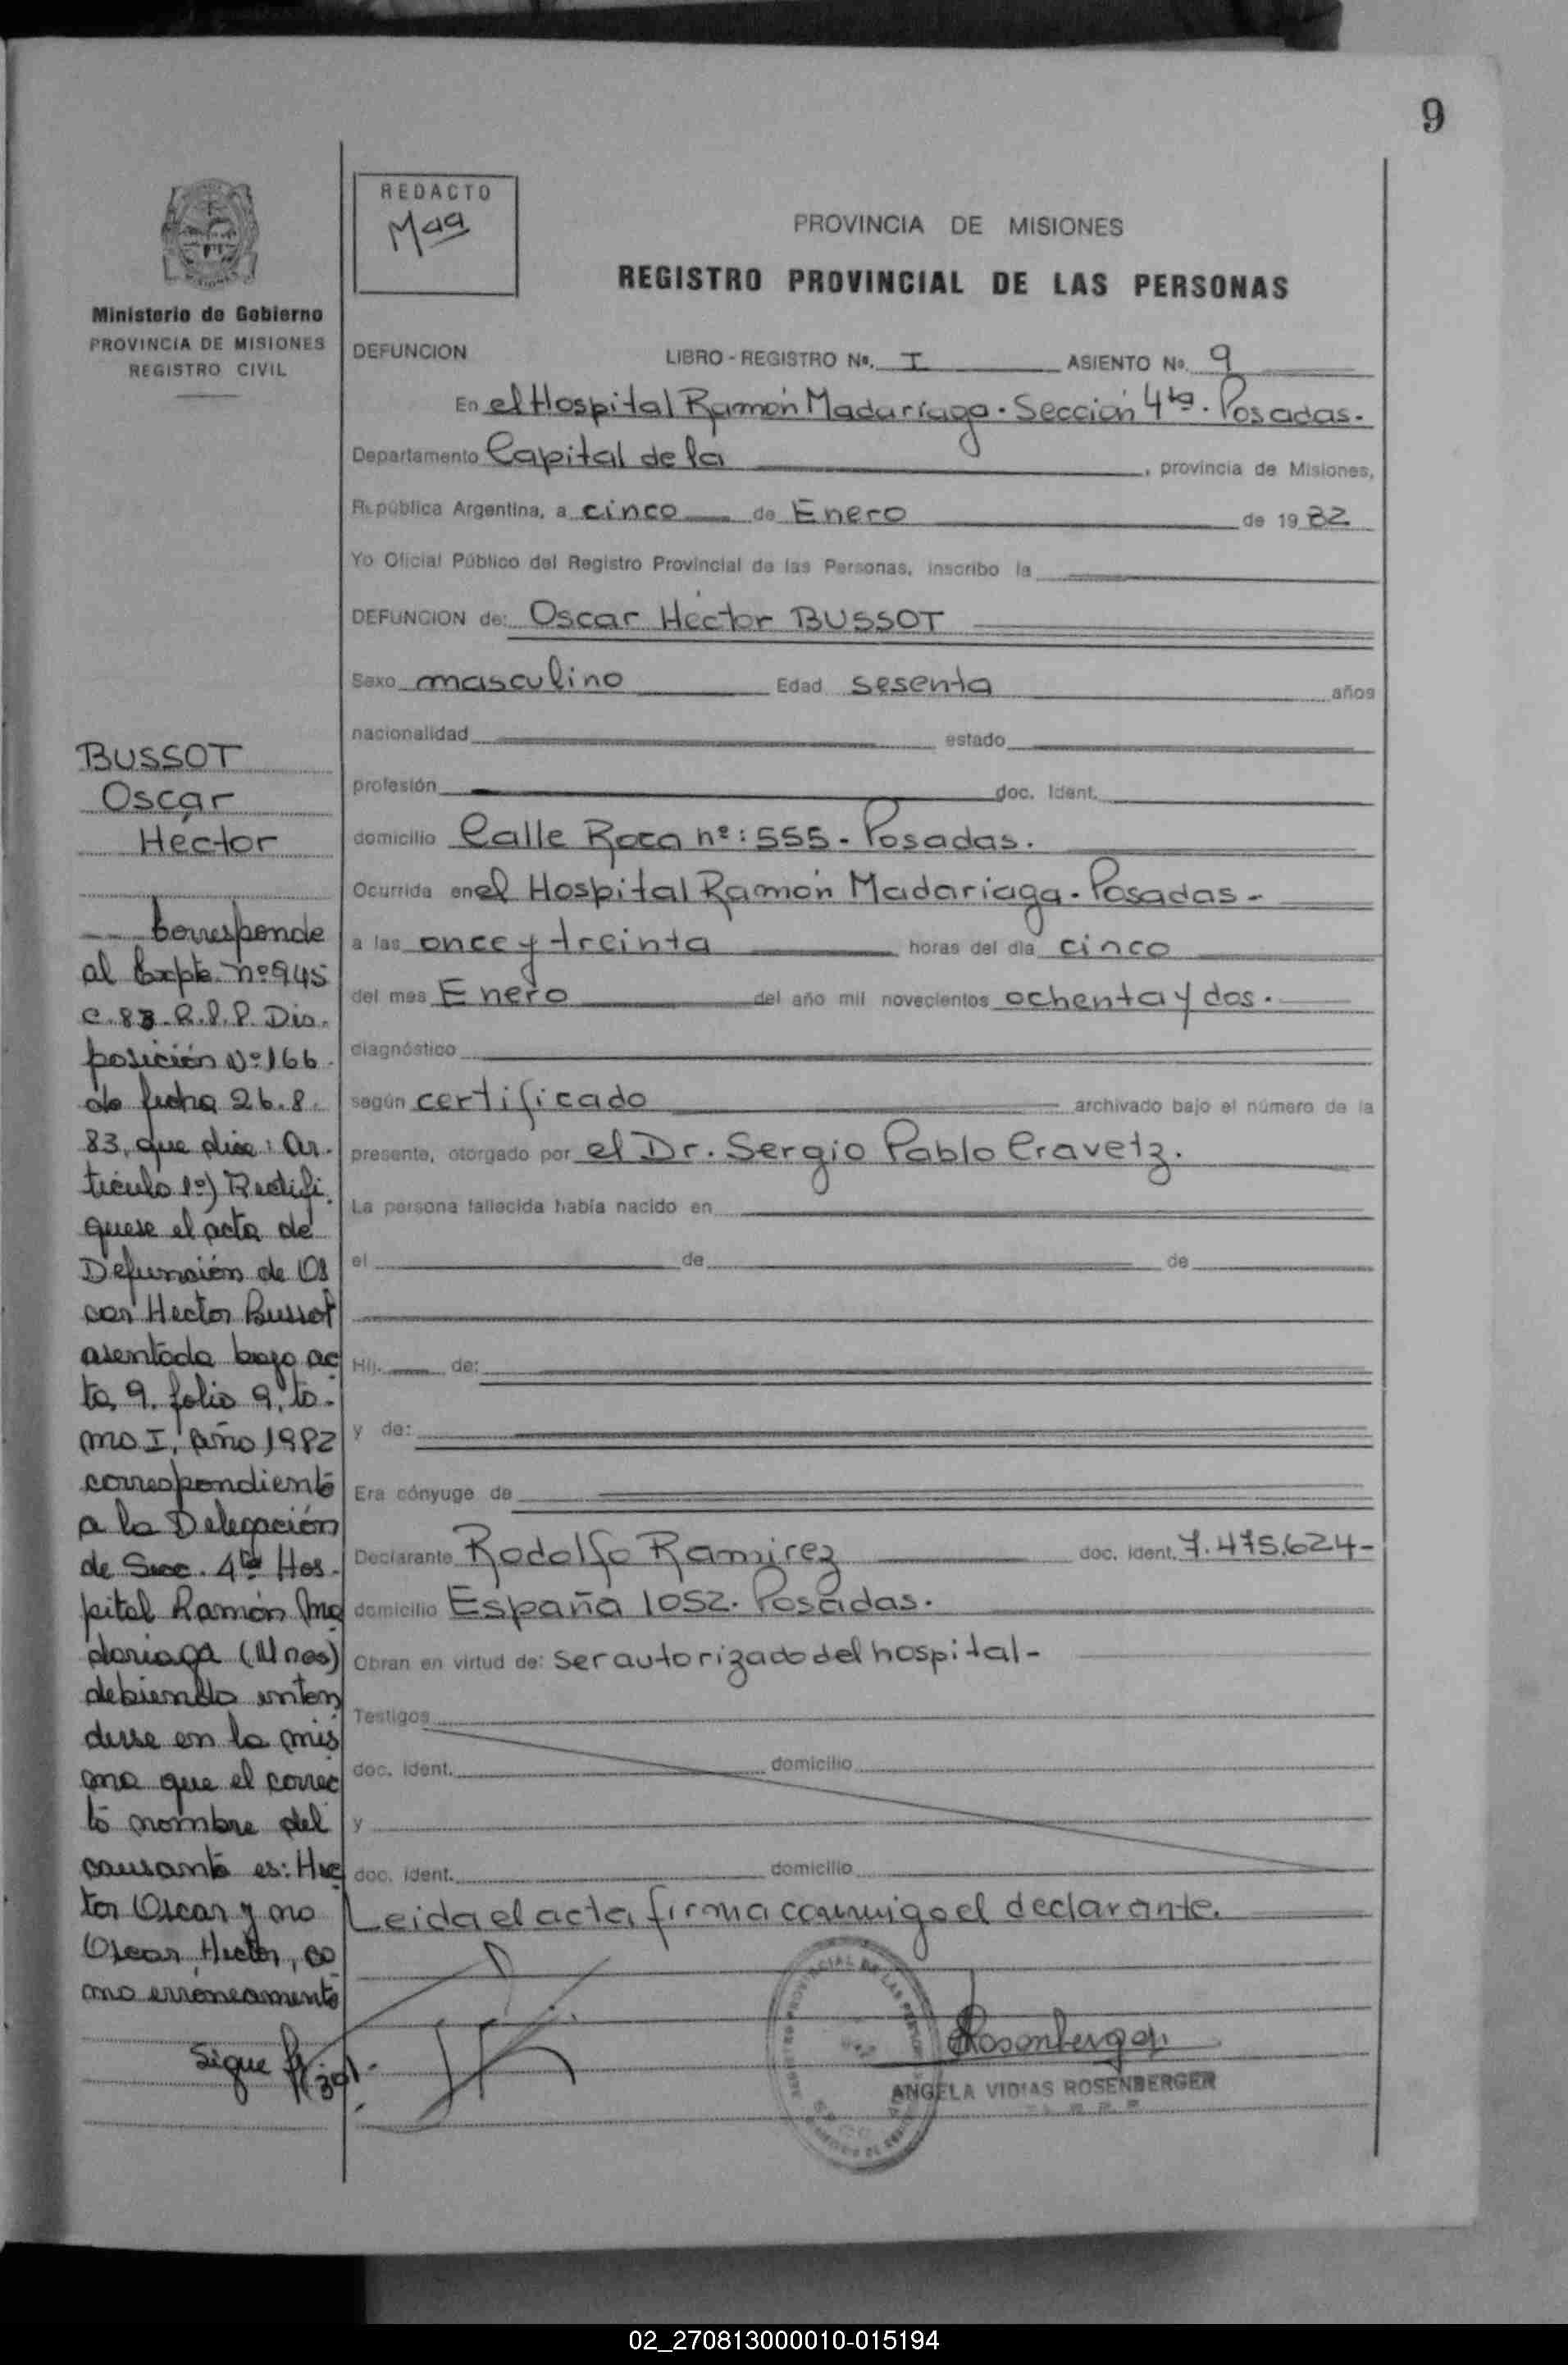 9
REDACTO
Maa
PROVINCIA DE MISIONES
REGISTRO PROVINCIAL DE LAS PERSONAS
Ministerio de Gobierno
PROVINCIA DE MISIONES
REGISTRO CIVIL
DEFUNCION LIBRO - REGISTRO No. I ASIENTO No. 9
En el Hospital Ramón Madariaga. Sección 4ta. Posadas.
Departamento Capital de la , provincia de Misiones,
República Argentina, a cinco de Enero de 19 82
Yo Oficial Público del Registro Provincial de las Personas, inscribo la
DEFUNCION de: Oscar Héctor BUSSOT
Sexo masculino Edad sesenta años
nacionalidad estado
profesión doc. Ident.
domicilio Calle Roca nº: 555 - Posadas.
Ocurrida en el Hospital Ramón Madariaga - Posadas -
a las once y treinta horas del día cinco
del mes Enero del año mil novecientos ochenta y dos.
diagnóstico
según certificado archivado bajo el número de la
presente, otorgado por el Dr. Sergio Pablo Cravetz.
La persona fallecida había nacido en
el de de
Hij. de:
y de:
Era cónyuge de
Declarante Rodolfo Ramirez doc. Ident. 7.475.624-
domicilio España 1052. Posadas.
Obran en virtud de: ser autorizado del hospital -
Testigos
doc. ident. domicilio
y
doc. ident. domicilio
Leida el acta, firma conmigo el declarante.
Rosenberger
ANGELA VIDIAS ROSENBERGER
BUSSOT
Oscar
Héctor
Corresponde
al Expte. nº 945
C. 83. R.P.P. Dis.
posición Nº 166
de fecha 26.8.
83, que dice: Ar.
tículo 1º) Rectifi.
quese el acta de
Defunción de Os
car Hector Bussot
asentada bajo ac
ta, 9. folio 9, to-
mo I, año 1982
correspondiente
a la Delegación
de Secc. 4ta Hos.
pital Ramón Ma
dariaga (Mnes)
debiendo enten
derse en la mis
ma que el correc
to nombre del
causante es: Hec
tor Oscar y no
Oscar Hector, co
mo erróneamente
Sigue
02_270813000010-015194